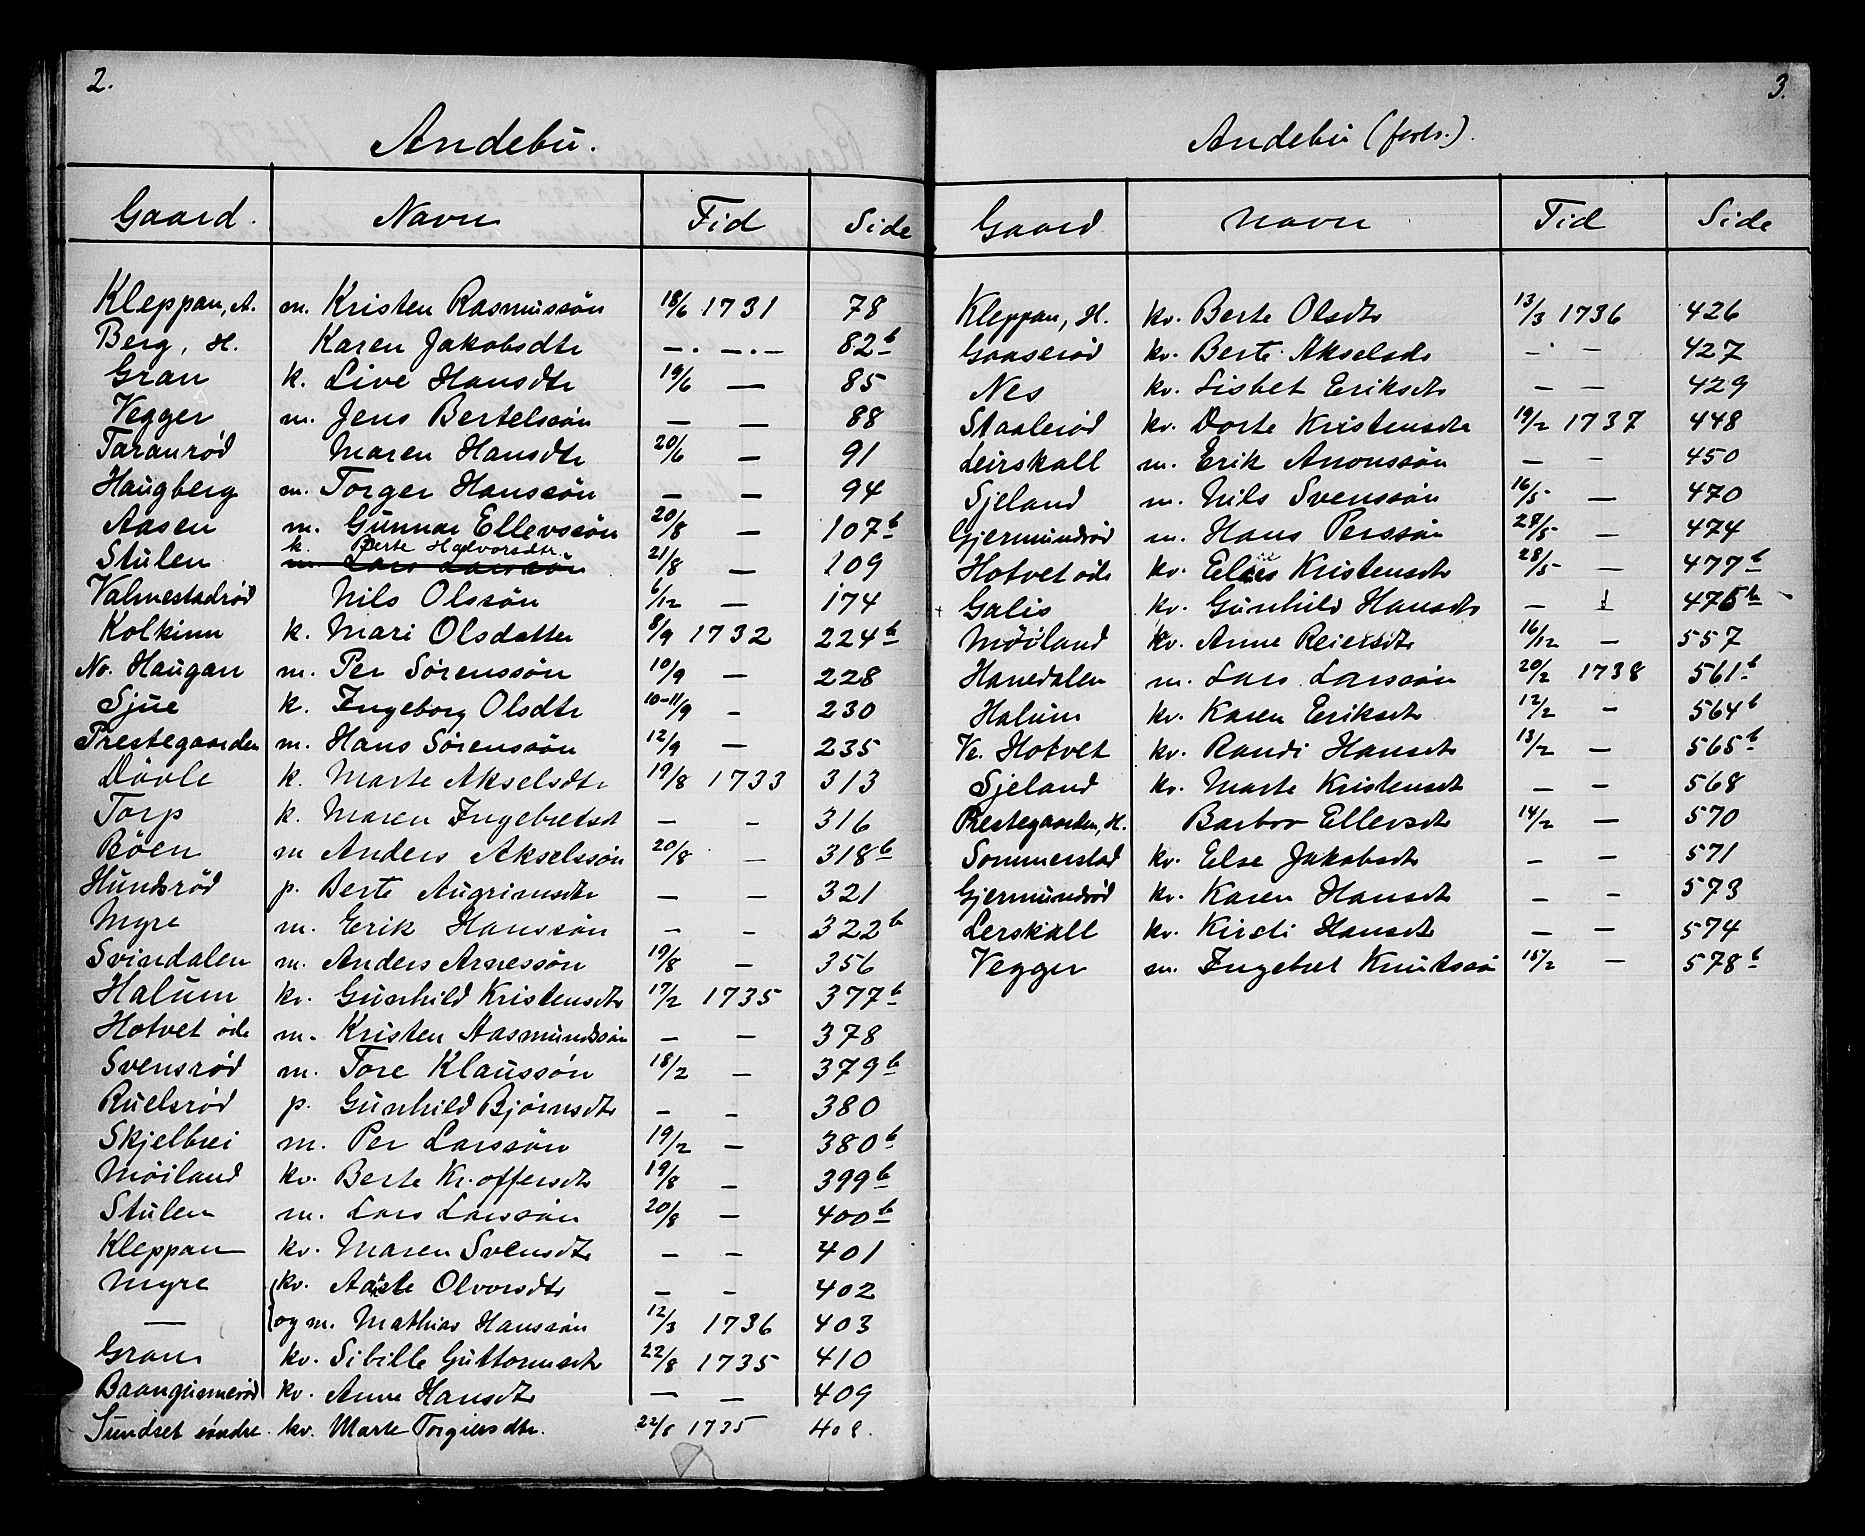 2.
Andebu.
Gaard. Navn Tid Side
Kleppan, A. m. Kristen Rasmussøn 18/6 1731 78
Berg, H. Karen Jakobsdtr —.—.— 82b
Gran k. Live Hansdtr 19/6 — 85
Vegger m. Jens Bertelssøn — — 88
Taranrød Maren Hansdtr 20/6 — 91
Haugberg m. Torger Hanssøn — — 94
Aasen m. Gunnar Ellevssøn 20/8 — 107b
k. Berte Halvorsdtr.
Stulen m. Lars Larssøn 21/8 — 109
Valmestadrød Nils Olssøn 6/12 — 174
Kolkinn k. Mari Olsdatter 8/9 1732 224b
No. Haugan m. Per Sørenssøn 10/9 — 228
Sjue k. Ingeborg Olsdtr 10-11/9 — 230
Prestegaarden m. Hans Sørenssøn 12/9 — 235
Døvle k. Marte Akselsdtr 19/8 1733 313
Torp k. Maren Ingebretsdt — — 316
Bøen m Anders Akselssøn 20/8 — 318b
Hundsrød p. Berte Augrimsdtr — — 321
Myre m. Erik Hanssøn — — 322b
Svindalen m. Anders Arnessøn 19/8 — 356
Halum kv. Gunhild Kristensdtr 17/2 1735 377b
Hotvet øde m. Kristen Aasmundssøn — — 378
Svensrød m. Tore Klaussøn 18/2 — 379b
Ruelsrød p. Gunhild Bjørnsdtr — — 380
Skjelbrei m. Per Larssøn 19/2 — 380b
Møiland kv. Berte Kr.offersdtr 19/8 — 399b
Stulen m. Lars Larssøn 20/8 — 400b
Kleppan kv. Maren Svensdtr — — 401
Myre kv. Aasle Olvorsdtr — — 402
— og m. Mathias Hanssøn 12/3 1736 403
Gran kv. Sibille Guttormsdtr 22/8 1735 410
Baangunnerød kv. Anne Hansdtr — — 409
Sundset søndre. kv. Marte Torgiersdtr. 22/8 1735 408.
3.
Andebu (forts.).
Gaard Navn Tid Side
Kleppan, H. kv. Berte Olsdtr 13/3 1736 426
Gaaserød kv. Berte Akselsdr — — 427
Nes kv. Lisbet Eriksdtr — — 429
Staalerød kv. Dorte Kristensdtr 19/2 1737 448
Leirskall m. Erik Anonssøn — — 450
Sjeland m. Nils Svenssøn 16/5 — 470
Gjermundrød m. Hans Perssøn 28/5 — 474
Hotvet øde kv. Kristensdtr 28/5 — 477b
Galis kv. Gunhild Hansdtr — 476b
Møiland kv. Anne Reiersdtr 16/12 — 557
Hanedalen m. Lars Larssøn 20/2 1738 561b
Halum kv. Karen Eriksdtr 12/2 — 564b
Ve. Hotvet kv. Randi Hansdtr 13/2 — 565b
Sjeland kv. Marte Kristensdtr — — 568
Prestegaarden, H. Barbro Ellevsdtr 14/2 — 570
Sommerstad kv. Else Jakobsdtr — — 571
Gjermundrød kv. Karen Hansdtr — — 573
Lerskall kv. Kirsti Hansdtr — — 574
Vegger m. Ingebret Knutssø 15/2 — 578b